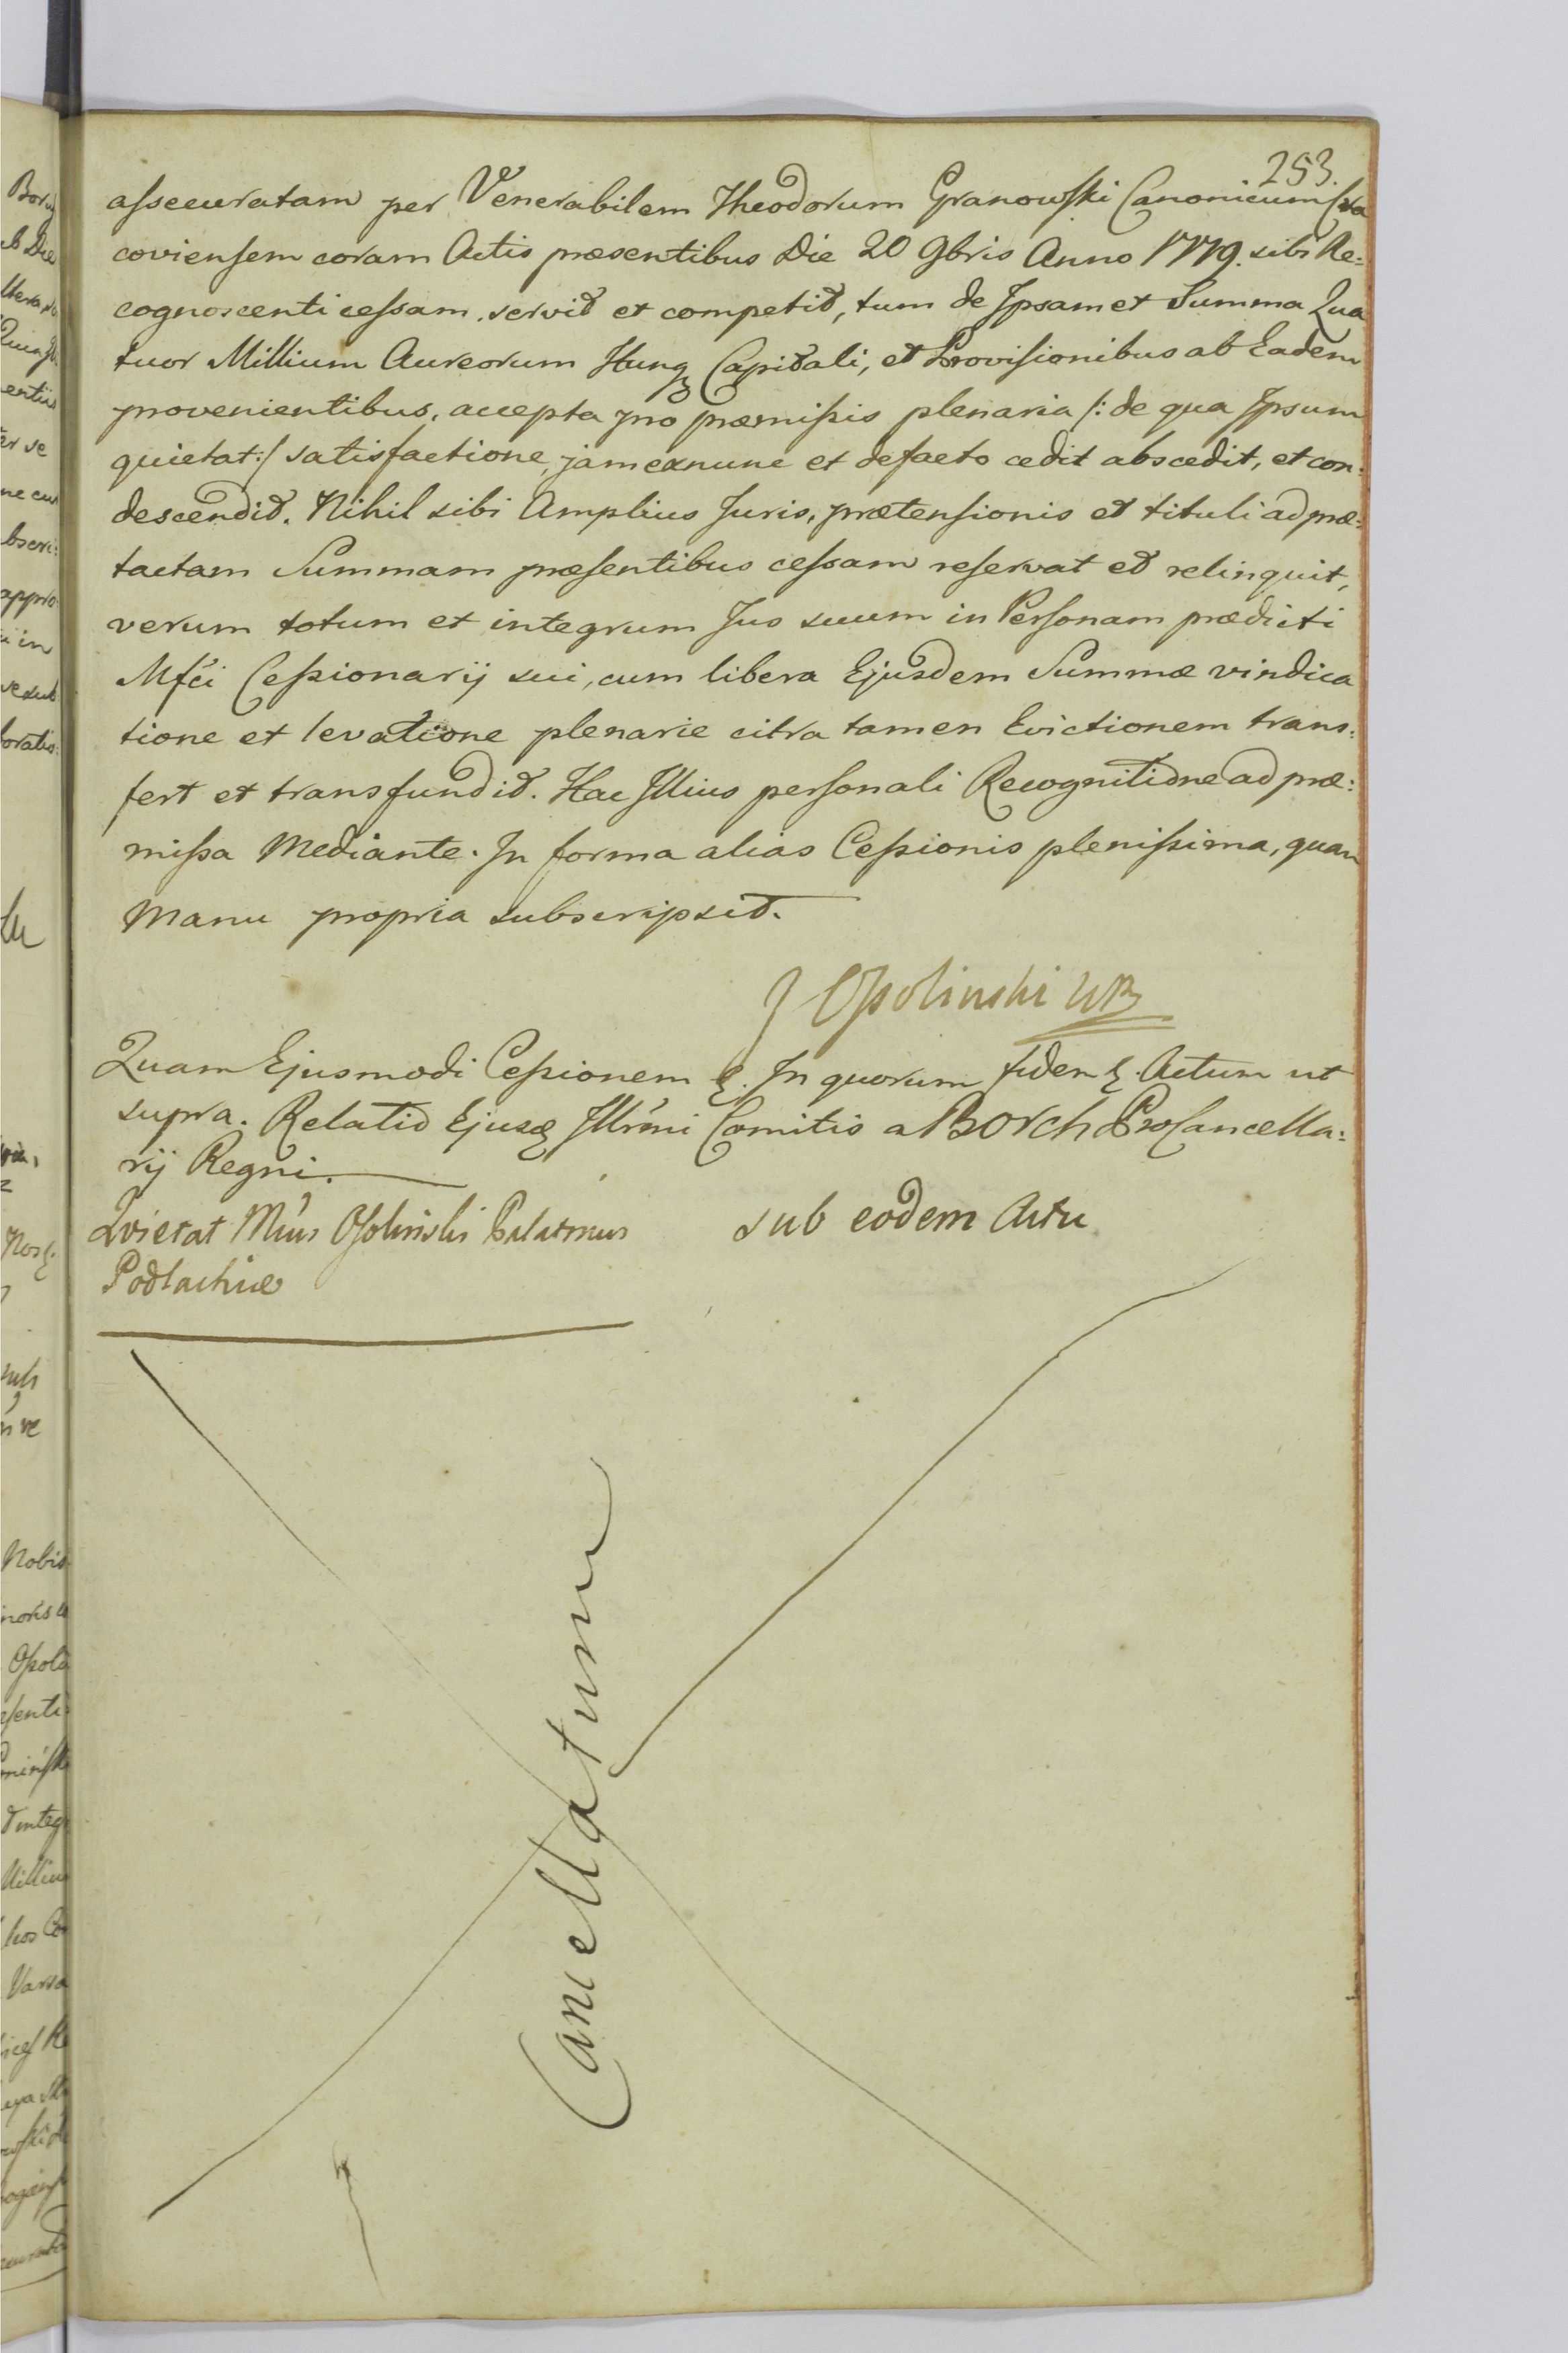 253.
assecuratam per Venerabilem Theodorum Granowski Canonicum Cra
coviensem coram Actis præsentibus Die 20 9bris Anno 1779. sibi Re:
cognoscenti cessam, servit et competit, tum de Ipsamet Summa Qua
tuor Millium Aureorum Hung Capitali, et Provisionibus ab Eadem
provenientibus, accepta pro præmissis plenaria /: de qua Ipsum
quietat :/ satisfactione, jam exnunc et defacto cedit abscedit, et con:
descendit. Nihil sibi Amplius Juris, prætensionis et tituli ad præ:
tactam Summam præsentibus cessam reservat et relinquit,
verum totum et integrum Jus suum in Personam prædicti
Mfci Cessionarij sui, cum libera Ejusdem Summæ vindica
tione et levatione plenarie citra tamen Evictionem trans:
fert et transfundit. Hac Illius personali Recognitione ad præ:
missa Mediante. In forma alias Cessionis plenissima, quam
Manu propria subscripsit.
J Ossolinski WP
Quam Ejusmodi Cessionem &. In quorum fidem &. Actum ut
supra. Relatio Ejusd Illrmi Comitis a Borch ProCancella:
rij Regni.
Qvietat Mcus Ossolinski Palatinus
Podlachiæ
sub eodem Actu
Cancellatum